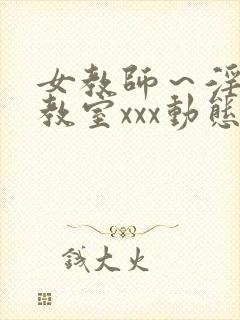 女教師～淫
教室xxx動態
錢大火